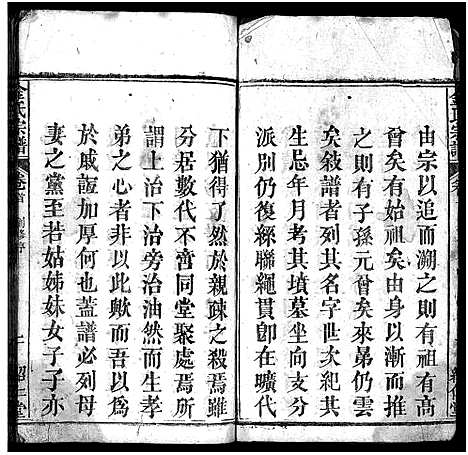 由宗以追而溯之有祖有高
曾矣有始祖矣由身以漸而推
之則有子孫元曾矣來昴仍雲
矣敍譜者列其名字世次紀其
生忌年月考其墳墓坐向支分
派別仍復綵聯繩貫卽在曠代
下猶得了然於親疎之殺焉雖
分居數代不啻同堂聚處焉所
謂上治下治旁治油然而生孝
弟之心者非以此歟而吾以爲
於戚誼加厚何也蓋譜必列母
妻之黨至若姑姊妹女子子亦
金氏宗譜
卷首